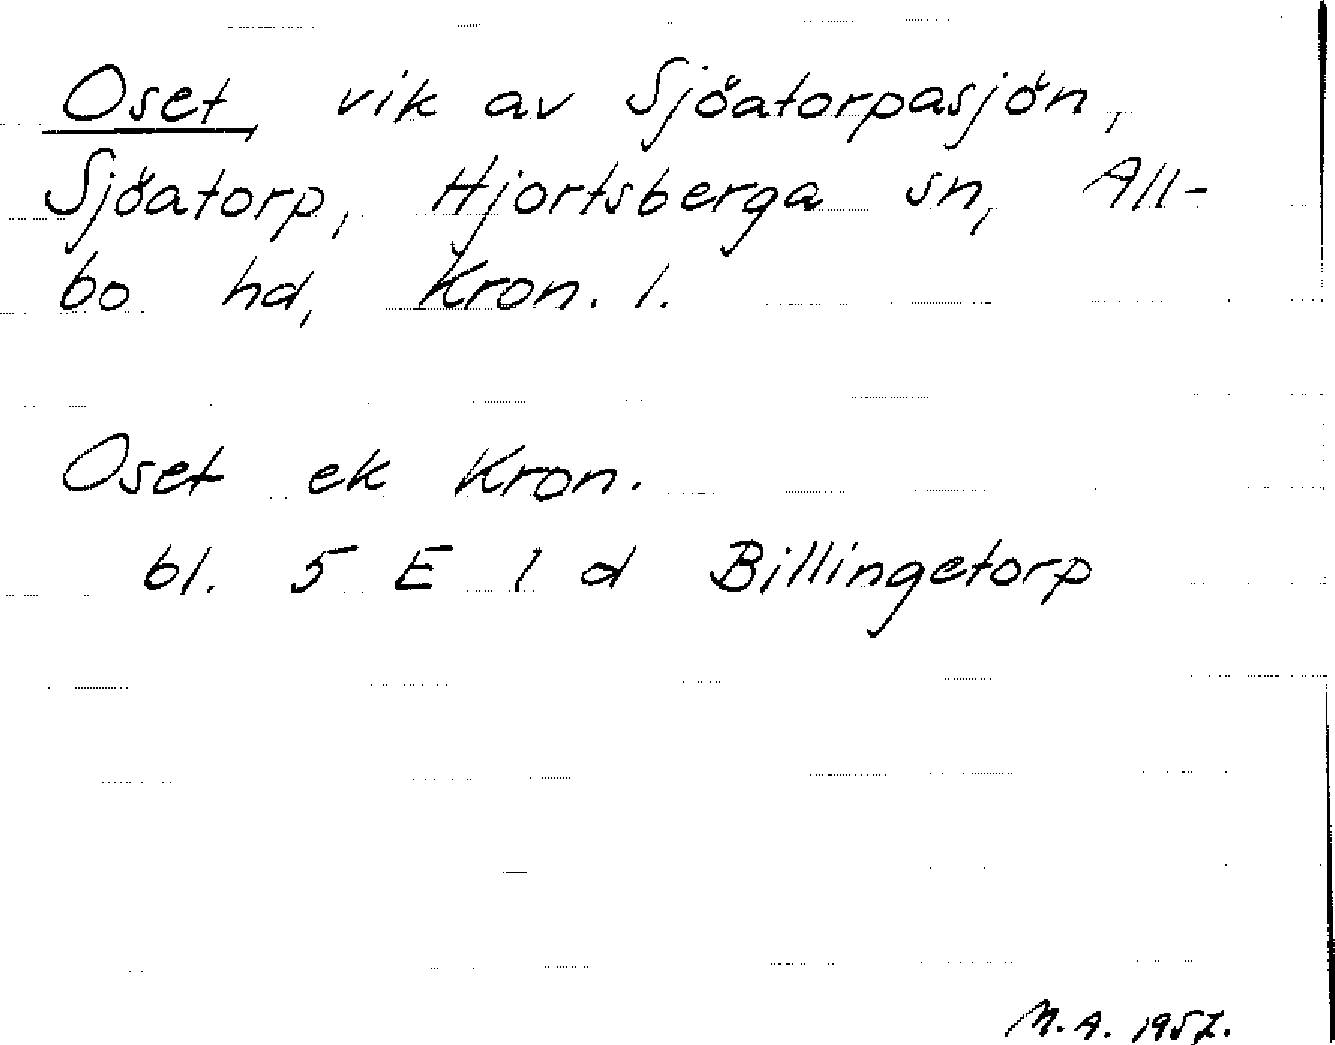 Oset, vik av Sjöatorpasjön,
Sjöatorp, Hjortsberga sn, All-
bo hd, Kron. l.
Oset ek Kron.
bl. 5 E 1 d Billingetorp
M.A. 1957.